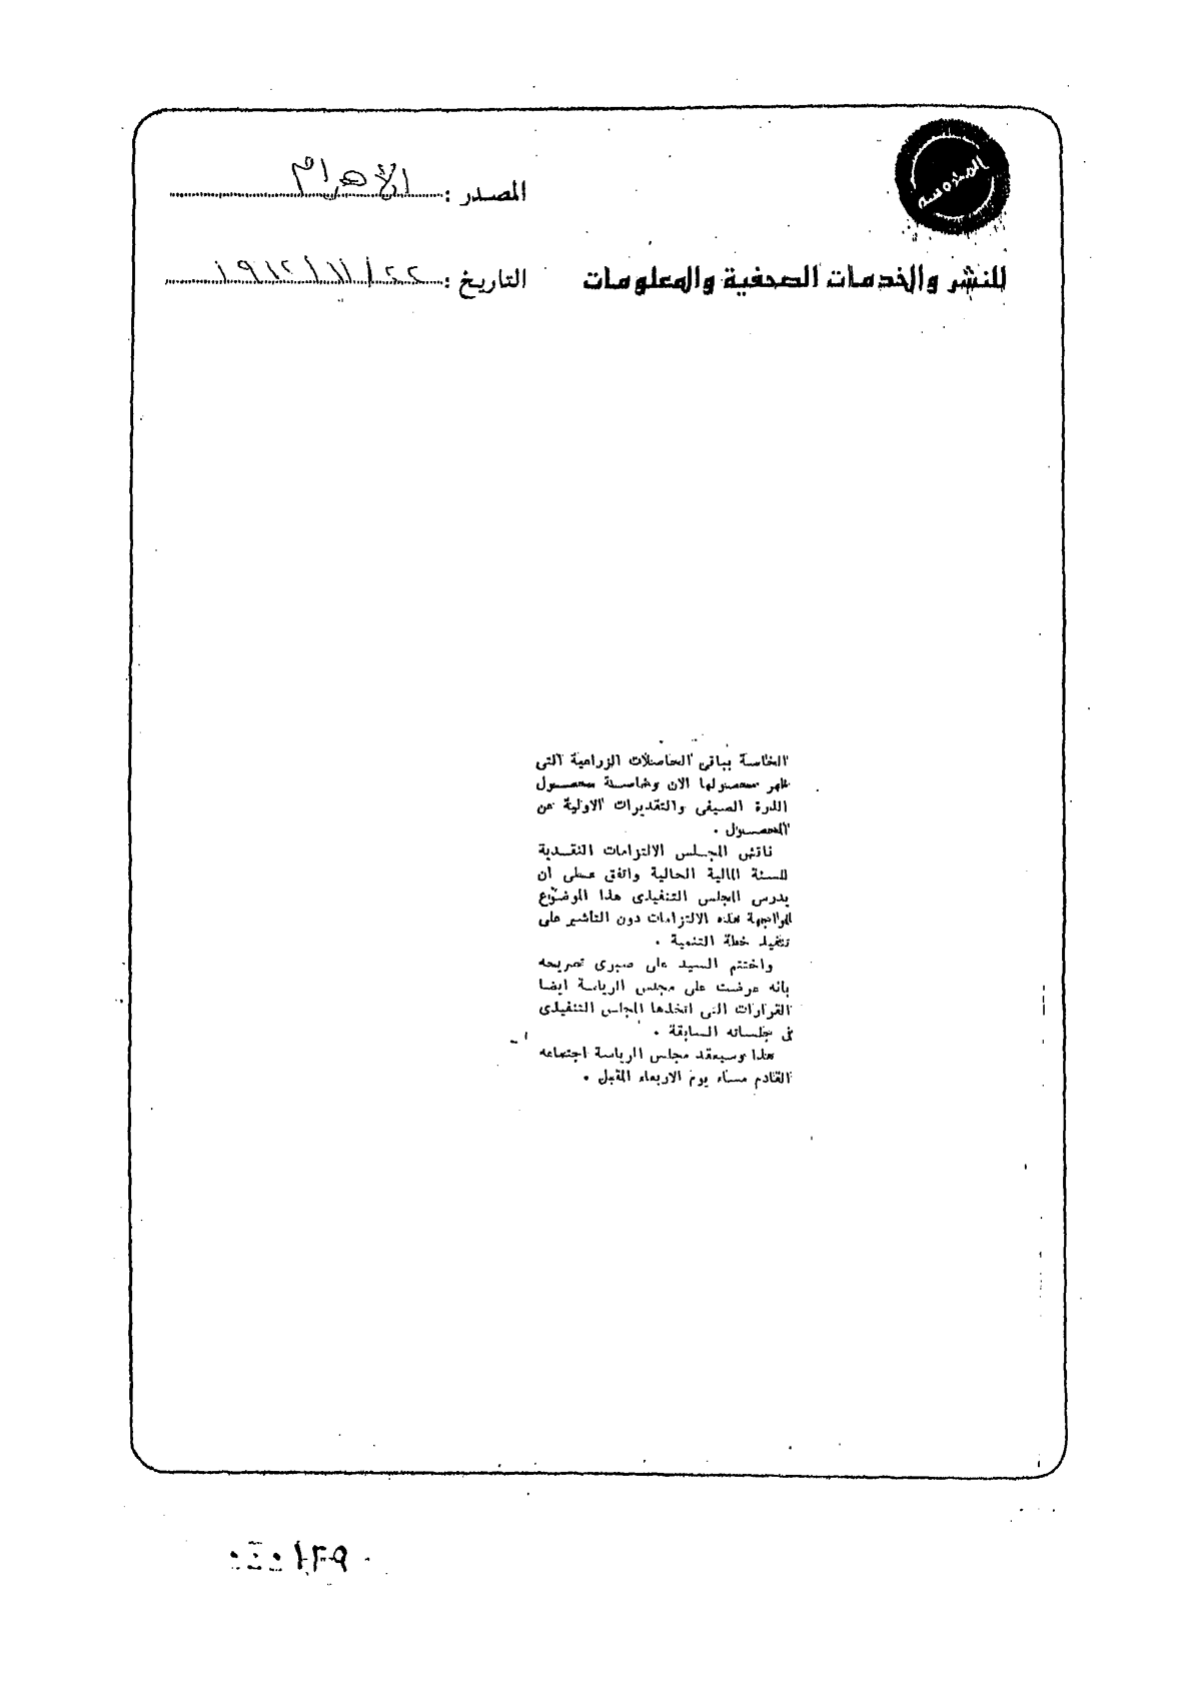 المصدر : الأهرام
للنشر والخدمات الصحفية والمعلومات
التاريخ : ٢٢ / ١١ / ١٩٦٢
الخاصة بباقى الحاصلات الزراعية التى
ظهر محصولها الان وخاصة محصول
الذرة الصيفى والتقديرات الاولية عن
المحصول .
ناقش المجلس الالتزامات النقدية
للسنة المالية الحالية واتفق على ان
يدرس المجلس التنفيذى هذا الموضوع
لمواجهة هذه الالتزامات دون التأثير على
تنفيذ خطة التنمية .
واختتم السيد على صبرى تصريحه
بانه عرضت على مجلس الرياسة ايضا
القرارات التى اتخذها المجلس التنفيذى
فى جلساته السابقة .
هذا وسيعقد مجلس الرياسة اجتماعه
القادم مساء يوم الاربعاء المقبل .